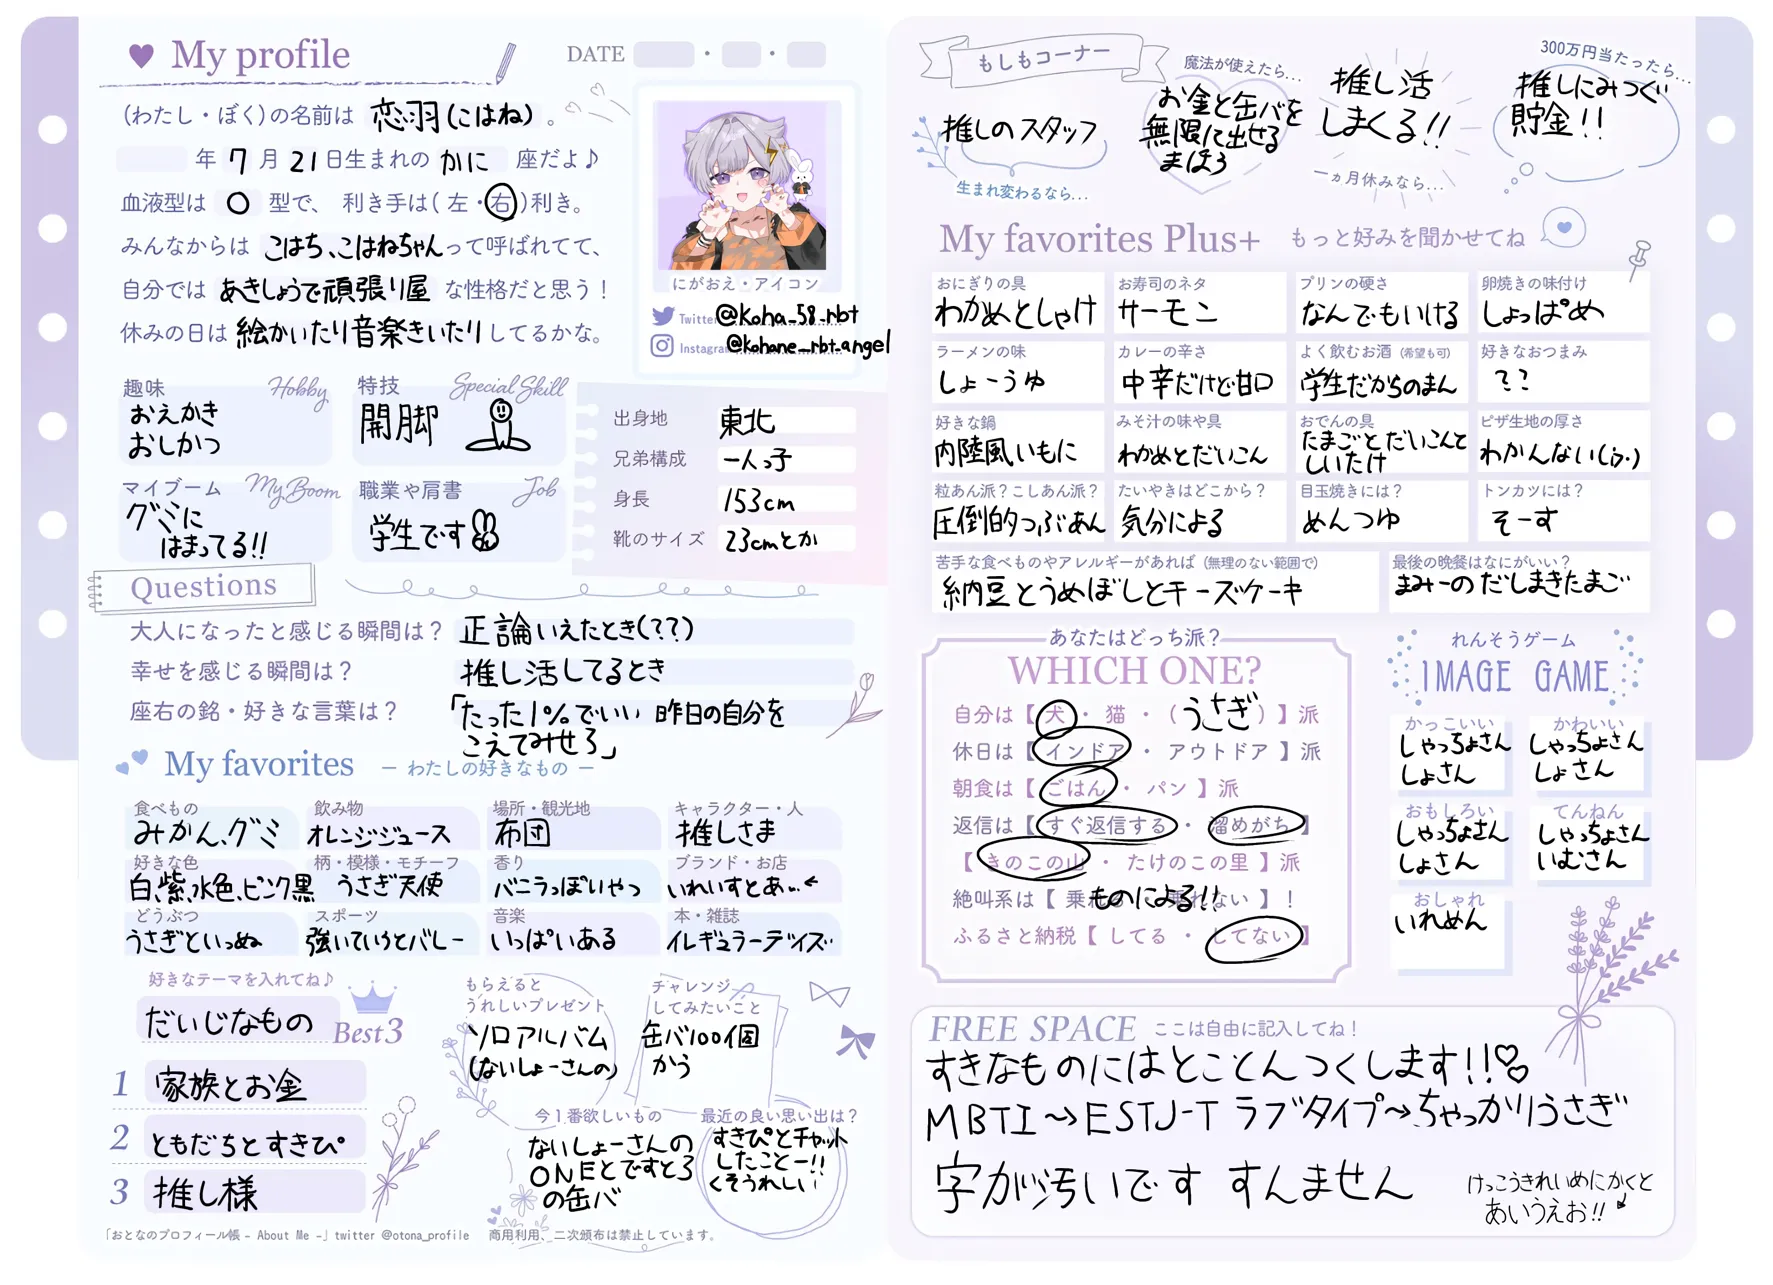 My profile
DATE ・ ・
(わたし・ぼく)の名前は 恋羽(こはね) 。
年 7 月 21 日生まれの かに 座だよ♪
血液型は O 型で、 利き手は( 左 ・ 右 )利き。
みんなからは こはち、こはねちゃん って呼ばれてて、
自分では あきしょうで頑張り屋 な性格だと思う！
休みの日は 絵かいたり音楽きいたり してるかな。
にがおえ・アイコン
Twitter @koha_58_rbt
Instagram @kohane_rbt.angel
趣味 Hobby
おえかき
おしかつ
特技 Special Skill
開脚
マイブーム My Boom
グミに
はまってる!!
職業や肩書 Job
学生です
出身地 東北
兄弟構成 一人っ子
身長 153cm
靴のサイズ 23cmとか
Questions
大人になったと感じる瞬間は？ 正論いえたとき(??)
幸せを感じる瞬間は？ 推し活してるとき
座右の銘・好きな言葉は？ 「たった1%でいい 昨日の自分を
こえてみせろ」
My favorites ー わたしの好きなもの ー
食べもの みかん、グミ
飲み物 オレンジジュース
場所・観光地 布団
キャラクター・人 推しさま
好きな色 白,紫,水色,ピンク,黒
柄・模様・モチーフ うさぎ天使
香り バニラっぽいやつ
ブランド・お店 いれいすとあ
どうぶつ うさぎといっぬ
スポーツ 強いていうとバレー
音楽 いっぱいある
本・雑誌 イレギュラーデイズ
好きなテーマを入れてね♪
だいじなもの
Best3
1 家族とお金
2 ともだちとすきぴ
3 推し様
もらえると
うれしいプレゼント
ソロアルバム
(ないしょーさんの)
チャレンジ
してみたいこと
缶バ100個
かう
今１番欲しいもの
ないしょーさんの
ONEとですとろ
の缶バ
最近の良い思い出は？
すきぴとチャット
したことー!!
くそうれしい
「おとなのプロフィール帳 - About Me -」twitter @otona_profile 商用利用、二次頒布は禁止しています。
もしもコーナー
推しのスタッフ
生まれ変わるなら...
魔法が使えたら...
お金と缶バを
無限に出せる
まほう
推し活
しまくる!!
一ヵ月休みなら...
300万円当たったら...
推しにみつぐ
貯金!!
My favorites Plus+ もっと好みを聞かせてね
おにぎりの具 わかめとしゃけ
お寿司のネタ サーモン
プリンの硬さ なんでもいける
卵焼きの味付け しょっぱめ
ラーメンの味 しょーうゆ
カレーの辛さ 中辛だけど甘口
よく飲むお酒 (希望も可) 学生だからのまん
好きなおつまみ ??
好きな鍋 内陸風いもに
みそ汁の味や具 わかめとだいこん
おでんの具 たまごとだいこんと
しいたけ
ピザ生地の厚さ わかんない
粒あん派？こしあん派？ 圧倒的つぶあん
たいやきはどこから？ 気分による
目玉焼きには？ めんつゆ
トンカツには？ そーす
苦手な食べものやアレルギーがあれば (無理のない範囲で)
納豆とうめぼしとチーズケーキ
最後の晩餐はなにがいい？
まみーのだしまきたまご
あなたはどっち派？
WHICH ONE?
自分は【 犬 ・ 猫 ・ ( うさぎ ) 】派
休日は【 インドア ・ アウトドア 】派
朝食は【 ごはん ・ パン 】派
返信は【 すぐ返信する ・ 溜めがち 】
【 きのこの山 ・ たけのこの里 】派
絶叫系は【 ものによる!! 】！
ふるさと納税【 してる ・ してない 】
れんそうゲーム
IMAGE GAME
かっこいい
しゃっちょさん
しょさん
かわいい
しゃっちょさん
しょさん
おもしろい
しゃっちょさん
しょさん
てんねん
しゃっちょさん
いむさん
おしゃれ
いれめん
FREE SPACE ここは自由に記入してね！
すきなものにはとことんつくします!!♡♡
MBTI→ESTJ-T ラブタイプ→ちゃっかりうさぎ
字が汚いです すんません
けっこうきれいめにかくと
あいうえお!!